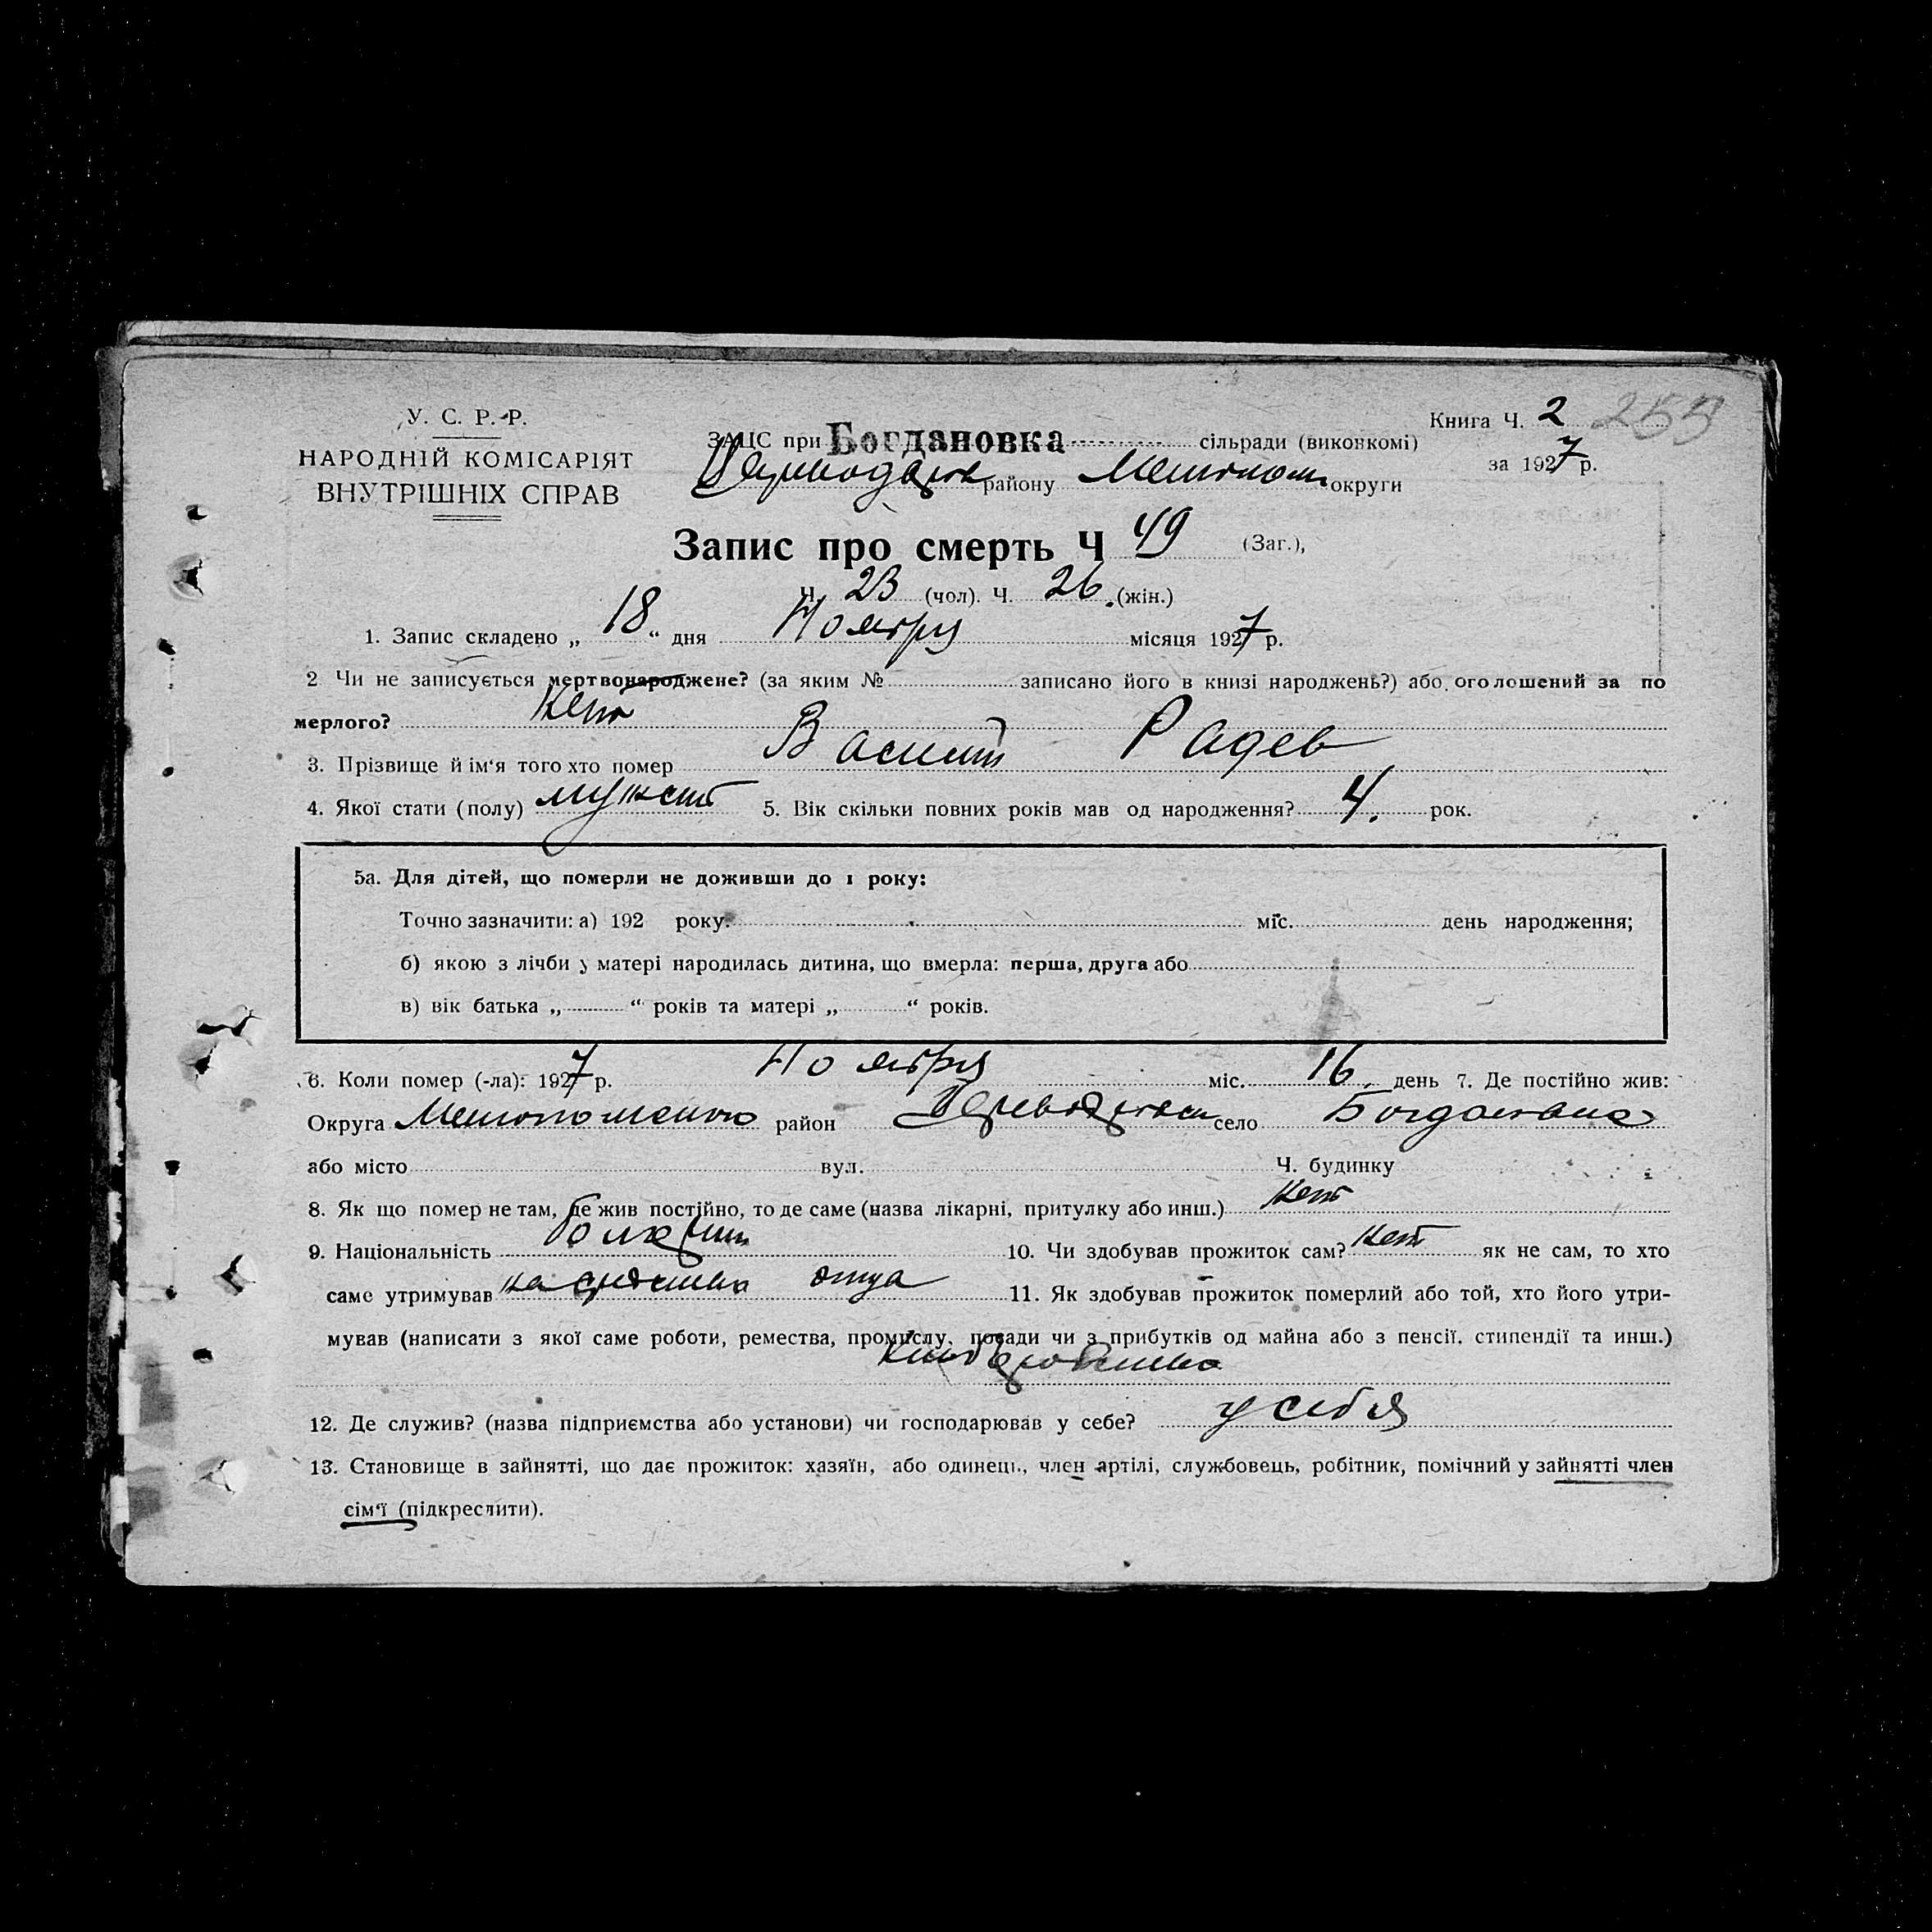 У. С. Р. Р.
НАРОДНІЙ КОМІСАРІЯТ
ВНУТРІШНІХ СПРАВ
Книга Ч. 2
за 1927 р.
ЗАЦС при Богдановка сільради (виконкомі)
району Мелитоп округи
Запис про смерть Ч 49 (Заг.),
Ч. 23 (чол). Ч. 26 (жін.)
1. Запис складено „ 18 “ дня Ноября місяця 1927 р.
2 Чи не записується мертвонароджене? (за яким № записано його в книзі народжень?) або оголошений за по
мерлого? Нет
3. Прізвище й ім‘я того хто помер Василий Радев
4. Якої стати (полу) мужской 5. Вік скільки повних років мав од народження? 4. рок.
5а. Для дітей, що померли не доживши до 1 року:
Точно зазначити: а) 192 року. міс. день народження;
б) якою з лічби у матері народилась дитина, що вмерла: перша, друга або
в) вік батька „ “ років та матері „ “ років.
6. Коли помер (-ла): 1927 р. Ноября міс. 16. день 7. Де постійно жив:
Округа район село Богдановка
або місто вул. Ч. будинку
8. Як що помер не там, де жив постійно, то де саме (назва лікарні, притулку або инш.) Нет
9. Національність болгарин 10. Чи здобував прожиток сам? Нет як не сам, то хто
саме утримував на средства отца 11. Як здобував прожиток померлий або той, хто його утри-
мував (написати з якої саме роботи, ремества, промислу, посади чи з прибутків од майна або з пенсії. стипендії та инш.)
12. Де служив? (назва підприємства або установи) чи господарював у себе? у себя
13. Становище в зайнятті, що дає прожиток: хазяїн, або одинець, член артілі, службовець, робітник, помічний у зайнятті член
сім‘ї (підкреслити).